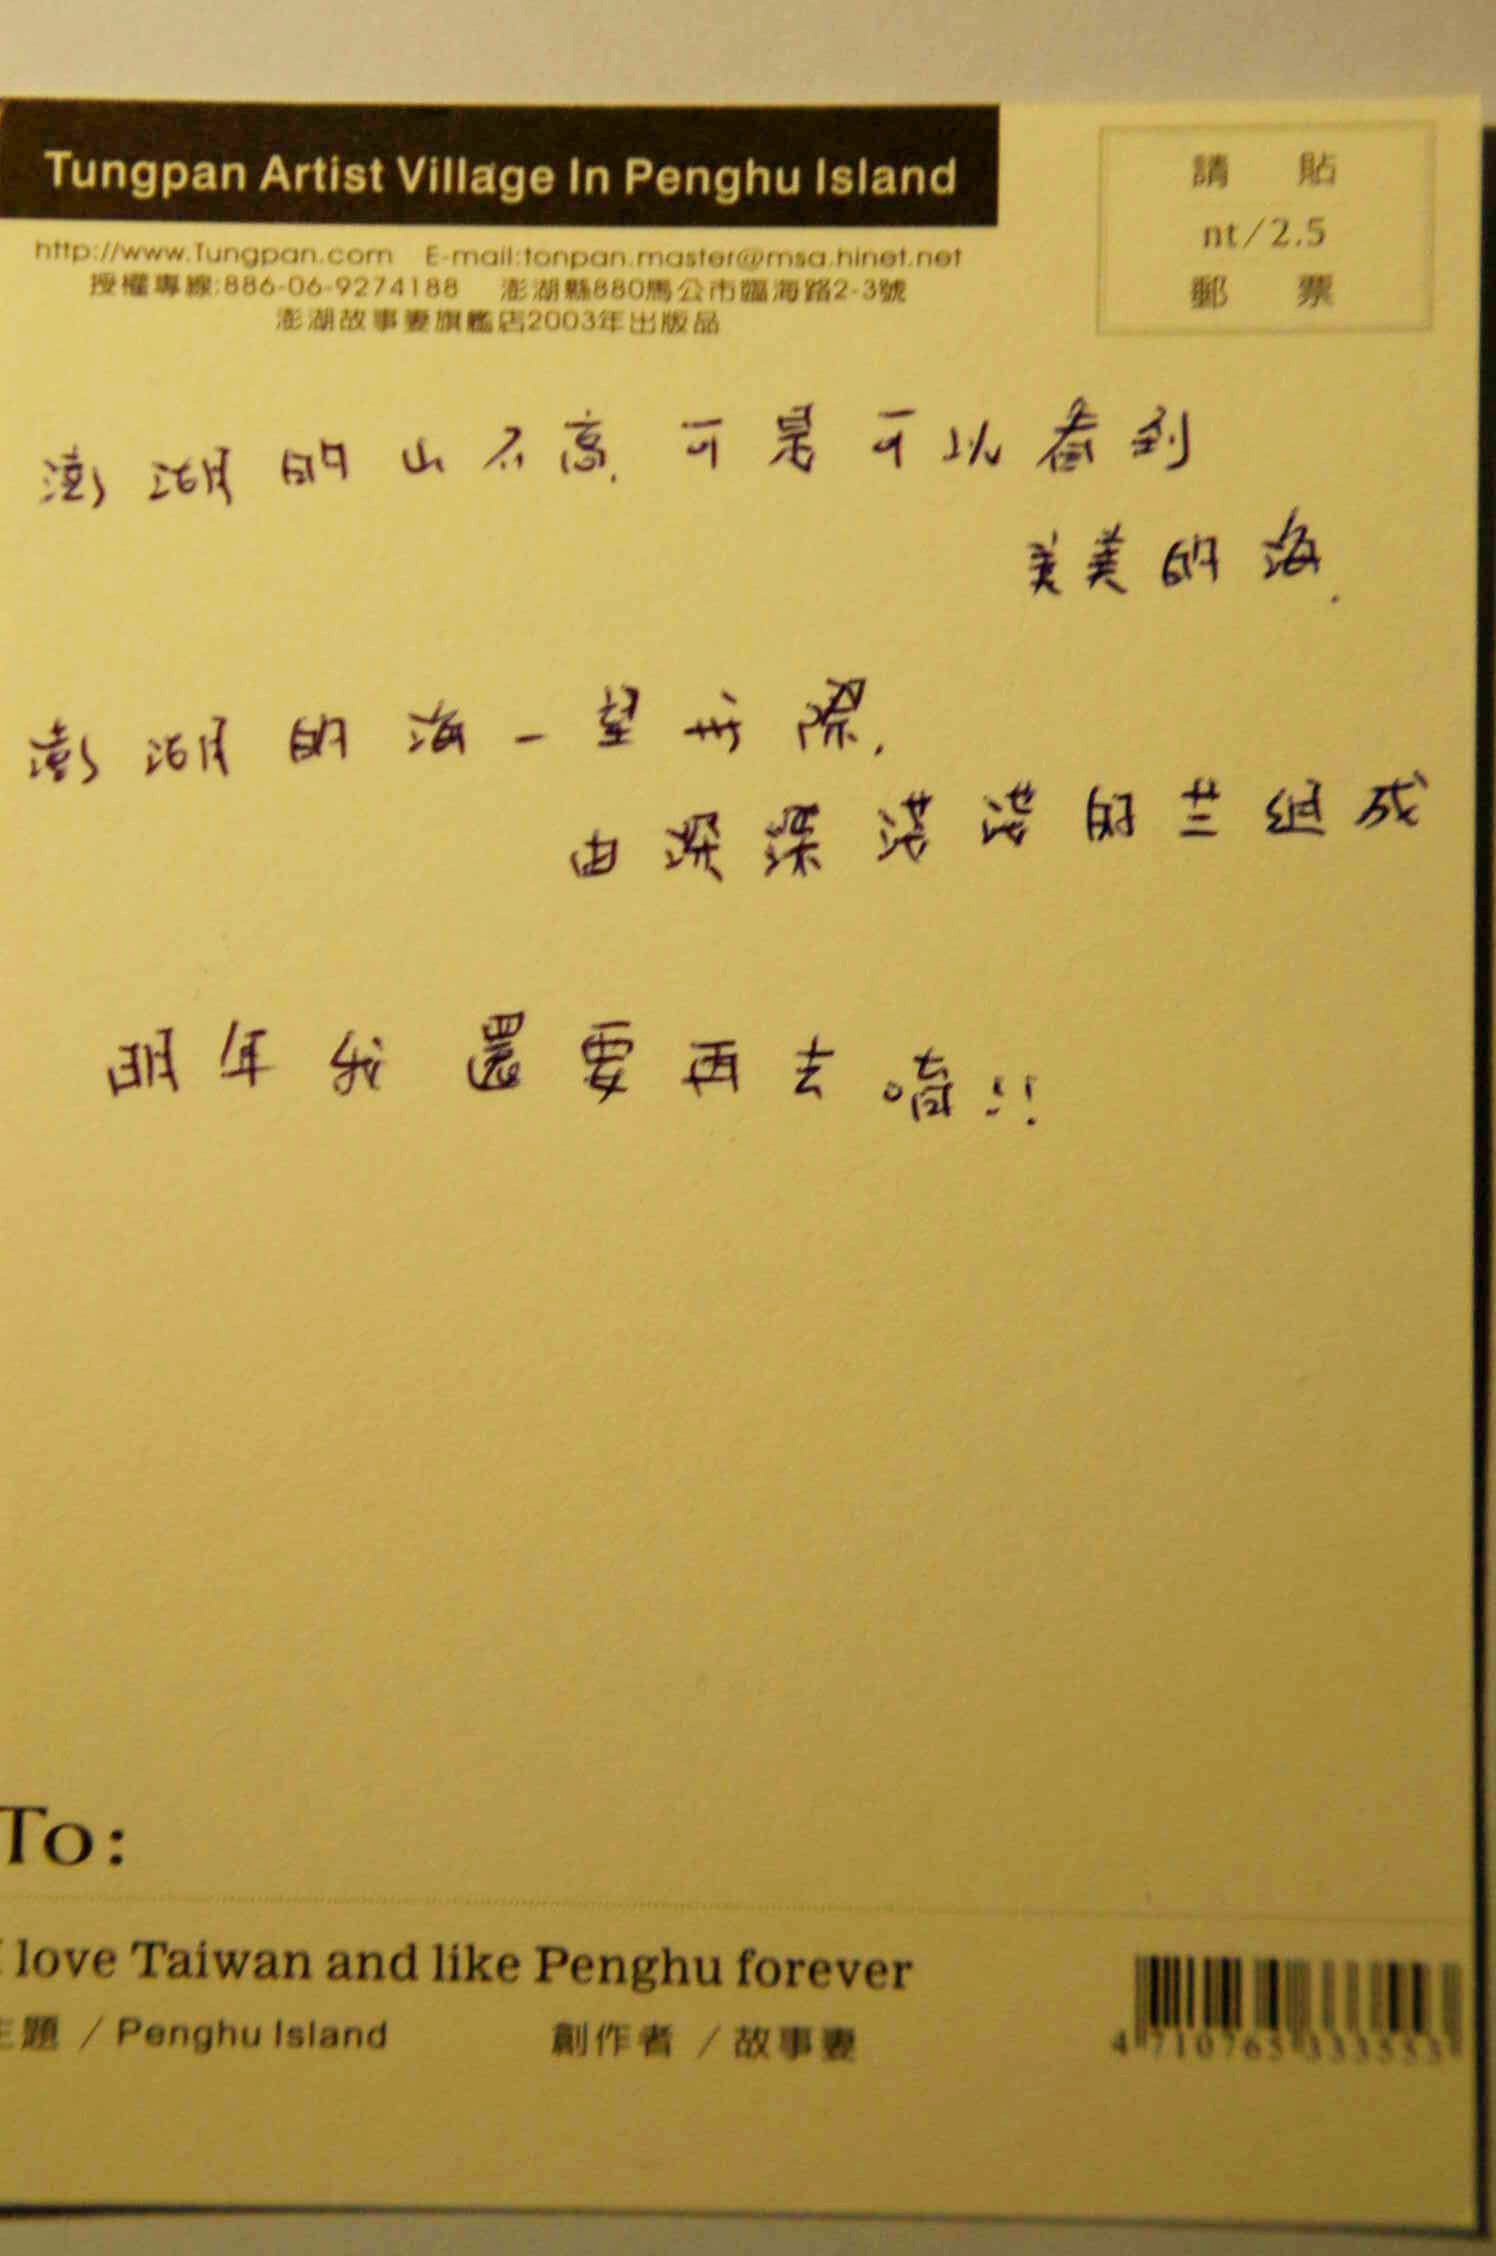 Tungpan Artist Village In Penghu Island
請 貼
nt/2.5
郵 票
http://www.Tungpan.com E-mail:tonpan.master@msa.hinet.net
授權專線:886-06-9274188 澎湖縣880馬公市臨海路2-3號
澎湖故事妻旗艦店2003年出版品
澎湖的山不高,可是可以看到
美美的海.
澎湖的海一望無際,
由深深淺淺的兰組成
明年我還要再去唷!!
To:
love Taiwan and like Penghu forever
主題 / Penghu Island 創作者 / 故事妻
4 710765 333553